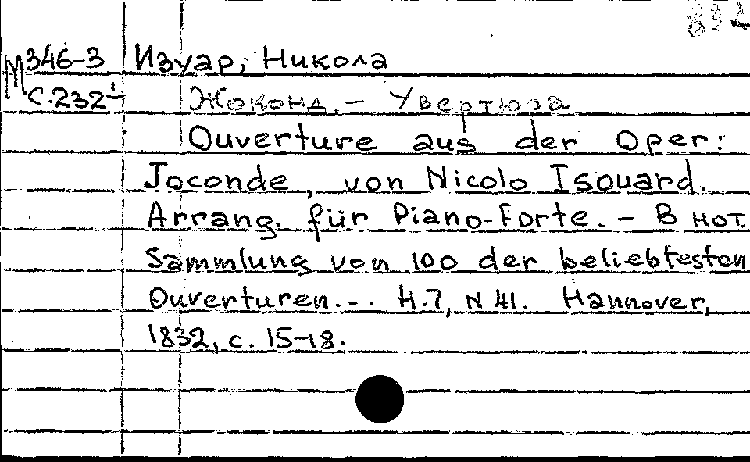 832
М346-3 Изуар, Никола
С.232 Жоконд. – Увертюра
Ouverture aus der Oper:
Joconde, von Nicolo Isouard.
Arrang. für Piano-Forte. – В нот.
Sammlung von 100 der beliebtesten
Ouverturen... H.7, N 41. Hannover,
1832, с. 15-18.